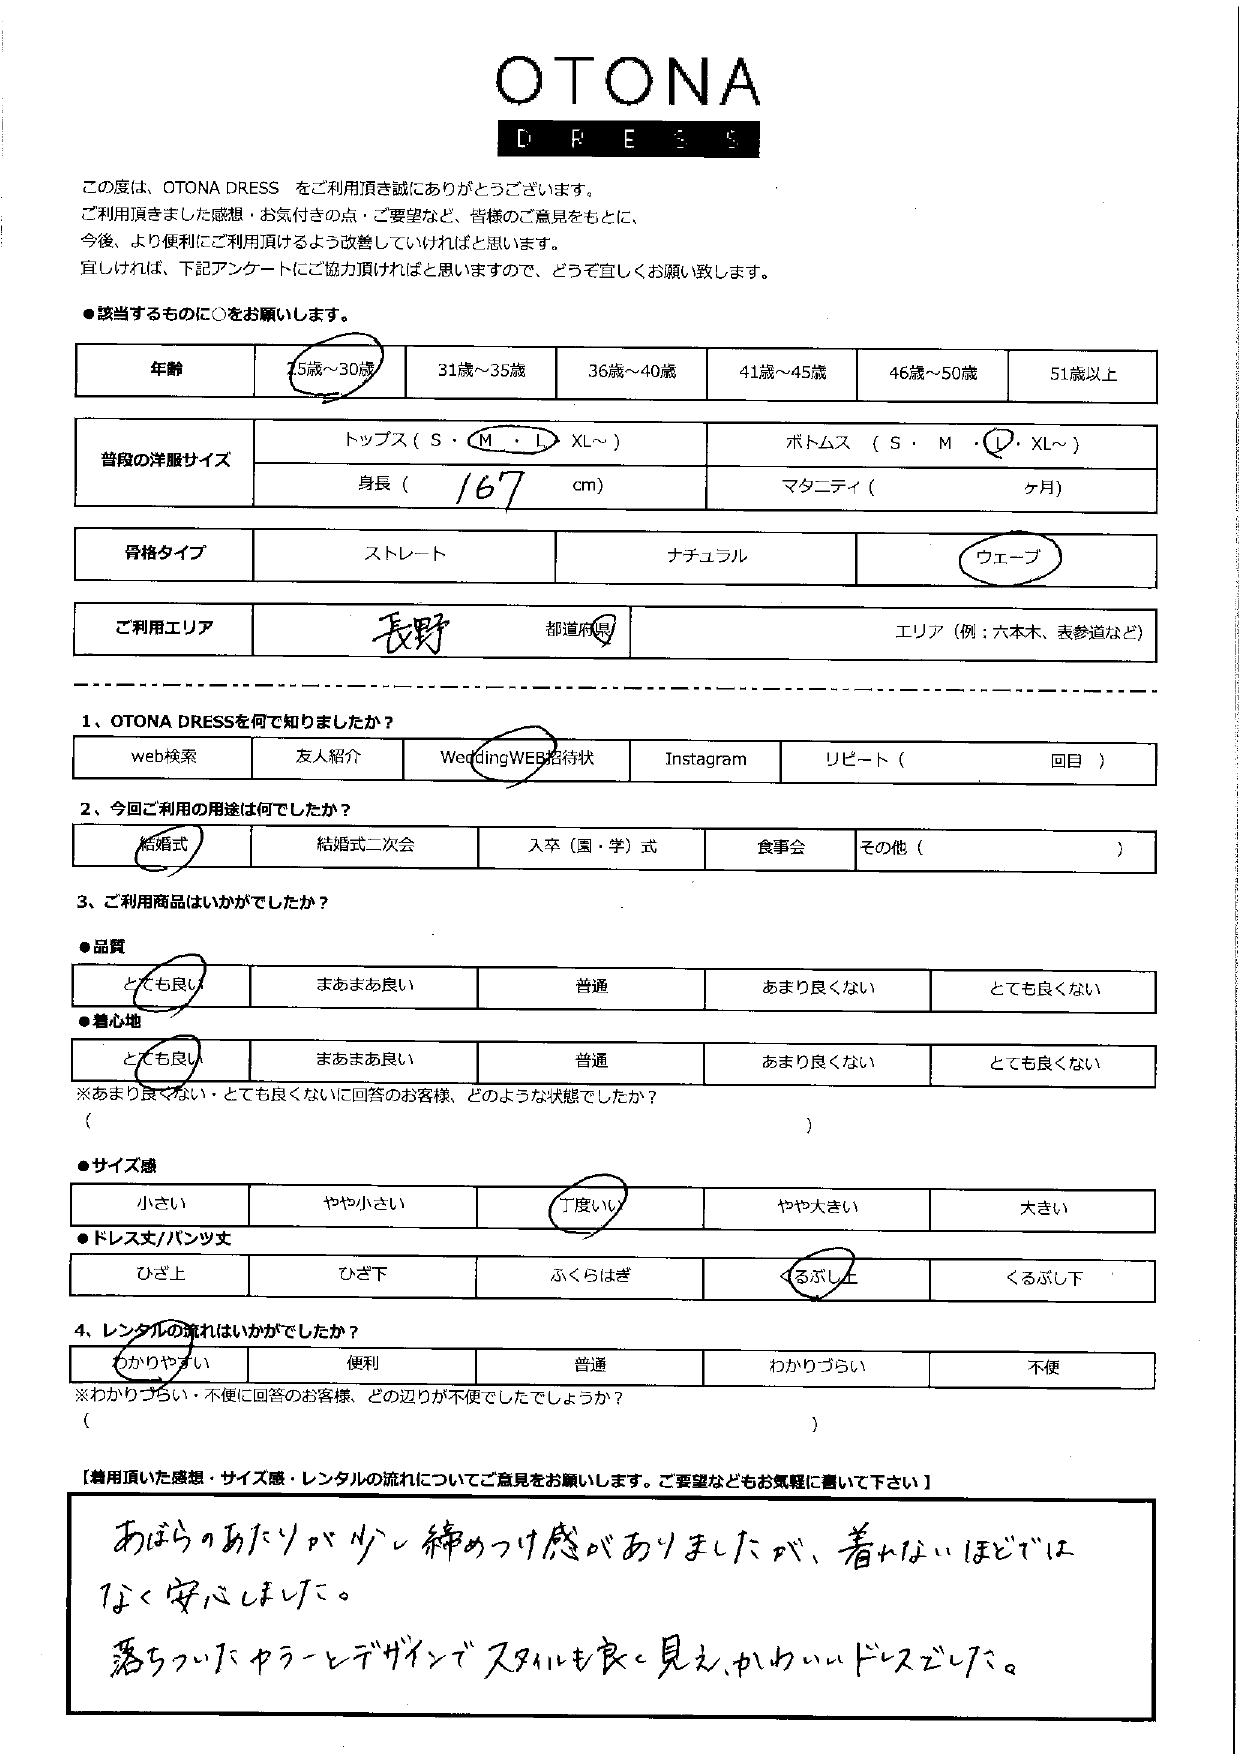 OTONA
DRESS
この度は、OTONA DRESS をご利用頂き誠にありがとうございます。
ご利用頂きました感想・お気付きの点・ご要望など、皆様のご意見をもとに、
今後、より便利にご利用頂けるよう改善していければと思います。
宜しければ、下記アンケートにご協力頂ければと思いますので、どうぞ宜しくお願い致します。
●該当するものに○をお願いします。
年齢 25歳～30歳 31歳～35歳 36歳～40歳 41歳～45歳 46歳～50歳 51歳以上
普段の洋服サイズ トップス ( S ・ M ・ L ・ XL～ ) ボトムス ( S ・ M ・ L ・ XL～ )
身長 ( 167 cm) マタニティ ( ヶ月)
骨格タイプ ストレート ナチュラル ウェーブ
ご利用エリア 長野 都道府県 エリア（例：六本木、表参道など）
1、OTONA DRESSを何で知りましたか？
web検索 友人紹介 WeddingWEB招待状 Instagram リピート ( 回目 )
2、今回ご利用の用途は何でしたか？
結婚式 結婚式二次会 入卒（園・学）式 食事会 その他 ( )
3、ご利用商品はいかがでしたか？
●品質
とても良い まあまあ良い 普通 あまり良くない とても良くない
●着心地
とても良い まあまあ良い 普通 あまり良くない とても良くない
※あまり良くない・とても良くないに回答のお客様、どのような状態でしたか？
( )
●サイズ感
小さい やや小さい 丁度いい やや大きい 大きい
●ドレス丈/パンツ丈
ひざ上 ひざ下 ふくらはぎ くるぶし上 くるぶし下
4、レンタルの流れはいかがでしたか？
わかりやすい 便利 普通 わかりづらい 不便
※わかりづらい・不便に回答のお客様、どの辺りが不便でしたでしょうか？
( )
【着用頂いた感想・サイズ感・レンタルの流れについてご意見をお願いします。ご要望などもお気軽に書いて下さい】
あばらのあたりが少し締めつけ感がありましたが、着れないほどでは
なく安心しました。
落ちついたカラーとデザインでスタイルも良く見え、かわいいドレスでした。